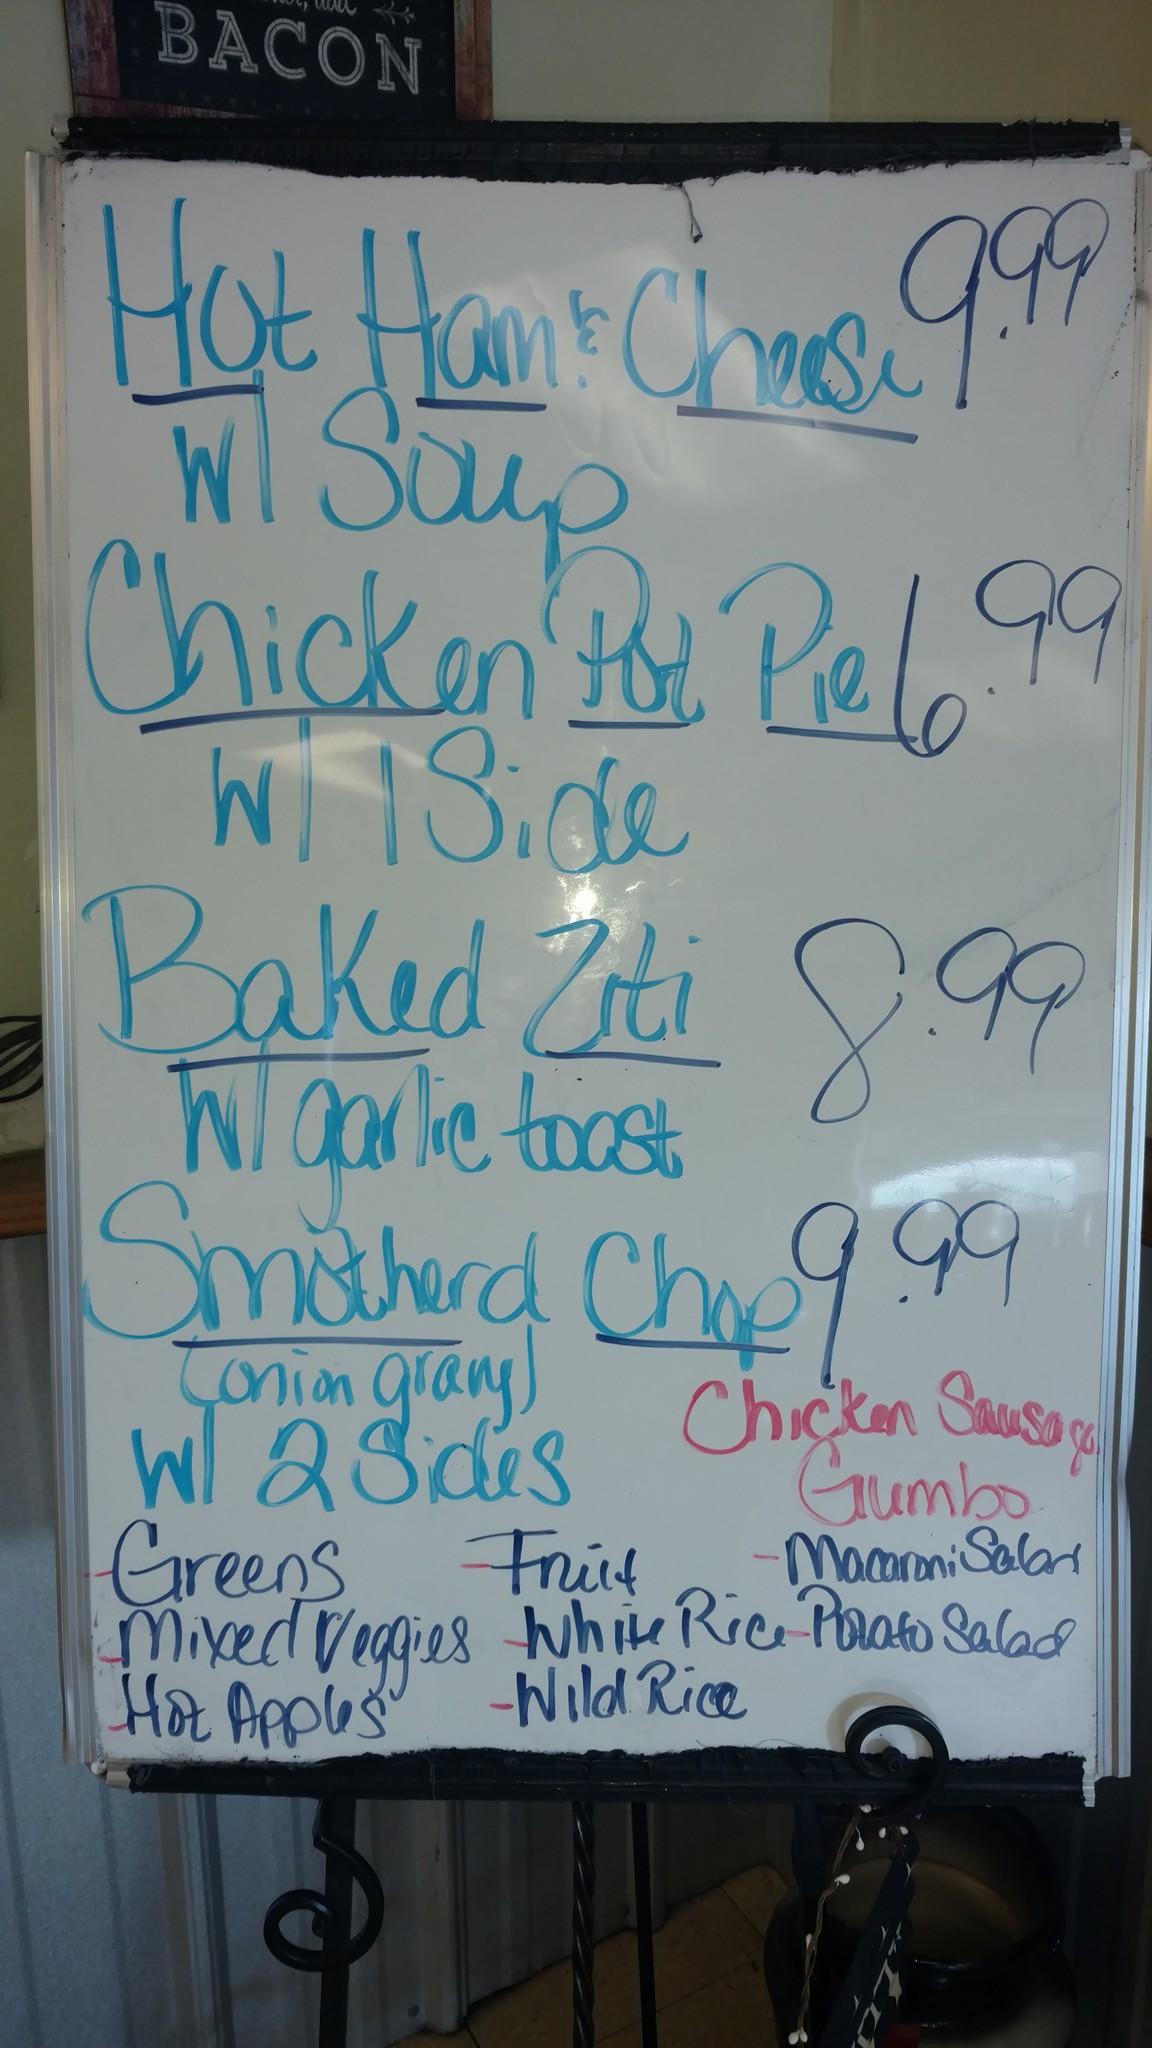 BACON
Hot Ham & Cheese 9.99
w/ Soup
Chicken Pot Pie 6.99
w/ 1 Side
Baked Ziti 8.99
w/ garlic toast
Smotherd Chop 9.99
(onion gravy)
w/ 2 Sides
Chicken Sausage
Gumbo
- Greens - Fruit - Macaroni Salad
- Mixed Veggies - White Rice - Potato Salad
- Hot Apples - Wild Rice